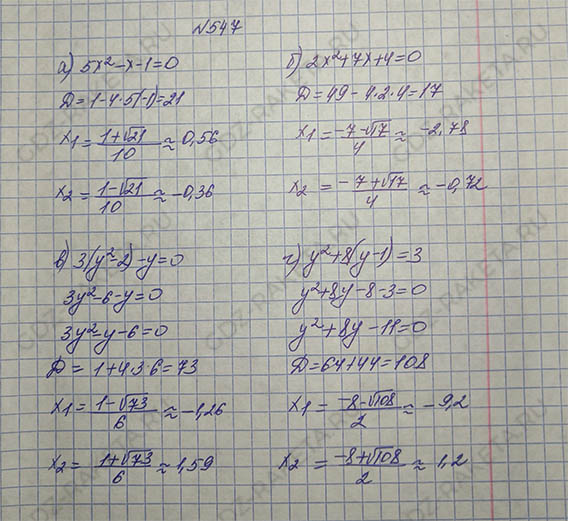 №547
а) 5x²-x-1=0
D=1-4·5(-1)=21
x1=(1+√21)/10≈0,56
x2=(1-√21)/10≈-0,36
б) 2x²+7x+4=0
D=49-4·2·4=17
x1=(-7-√17)/4≈-2,78
x2=(-7+√17)/4≈-0,72
в) 3(y²-2)-y=0
3y²-6-y=0
3y²-y-6=0
D=1+4·3·6=73
x1=(1-√73)/6≈-1,26
x2=(1+√73)/6≈1,59
г) y²+8(y-1)=3
y²+8y-8-3=0
y²+8y-11=0
D=64+44=108
x1=(-8-√108)/2≈-9,2
x2=(-8+√108)/2≈1,2
GDZ-RAKETA.RU